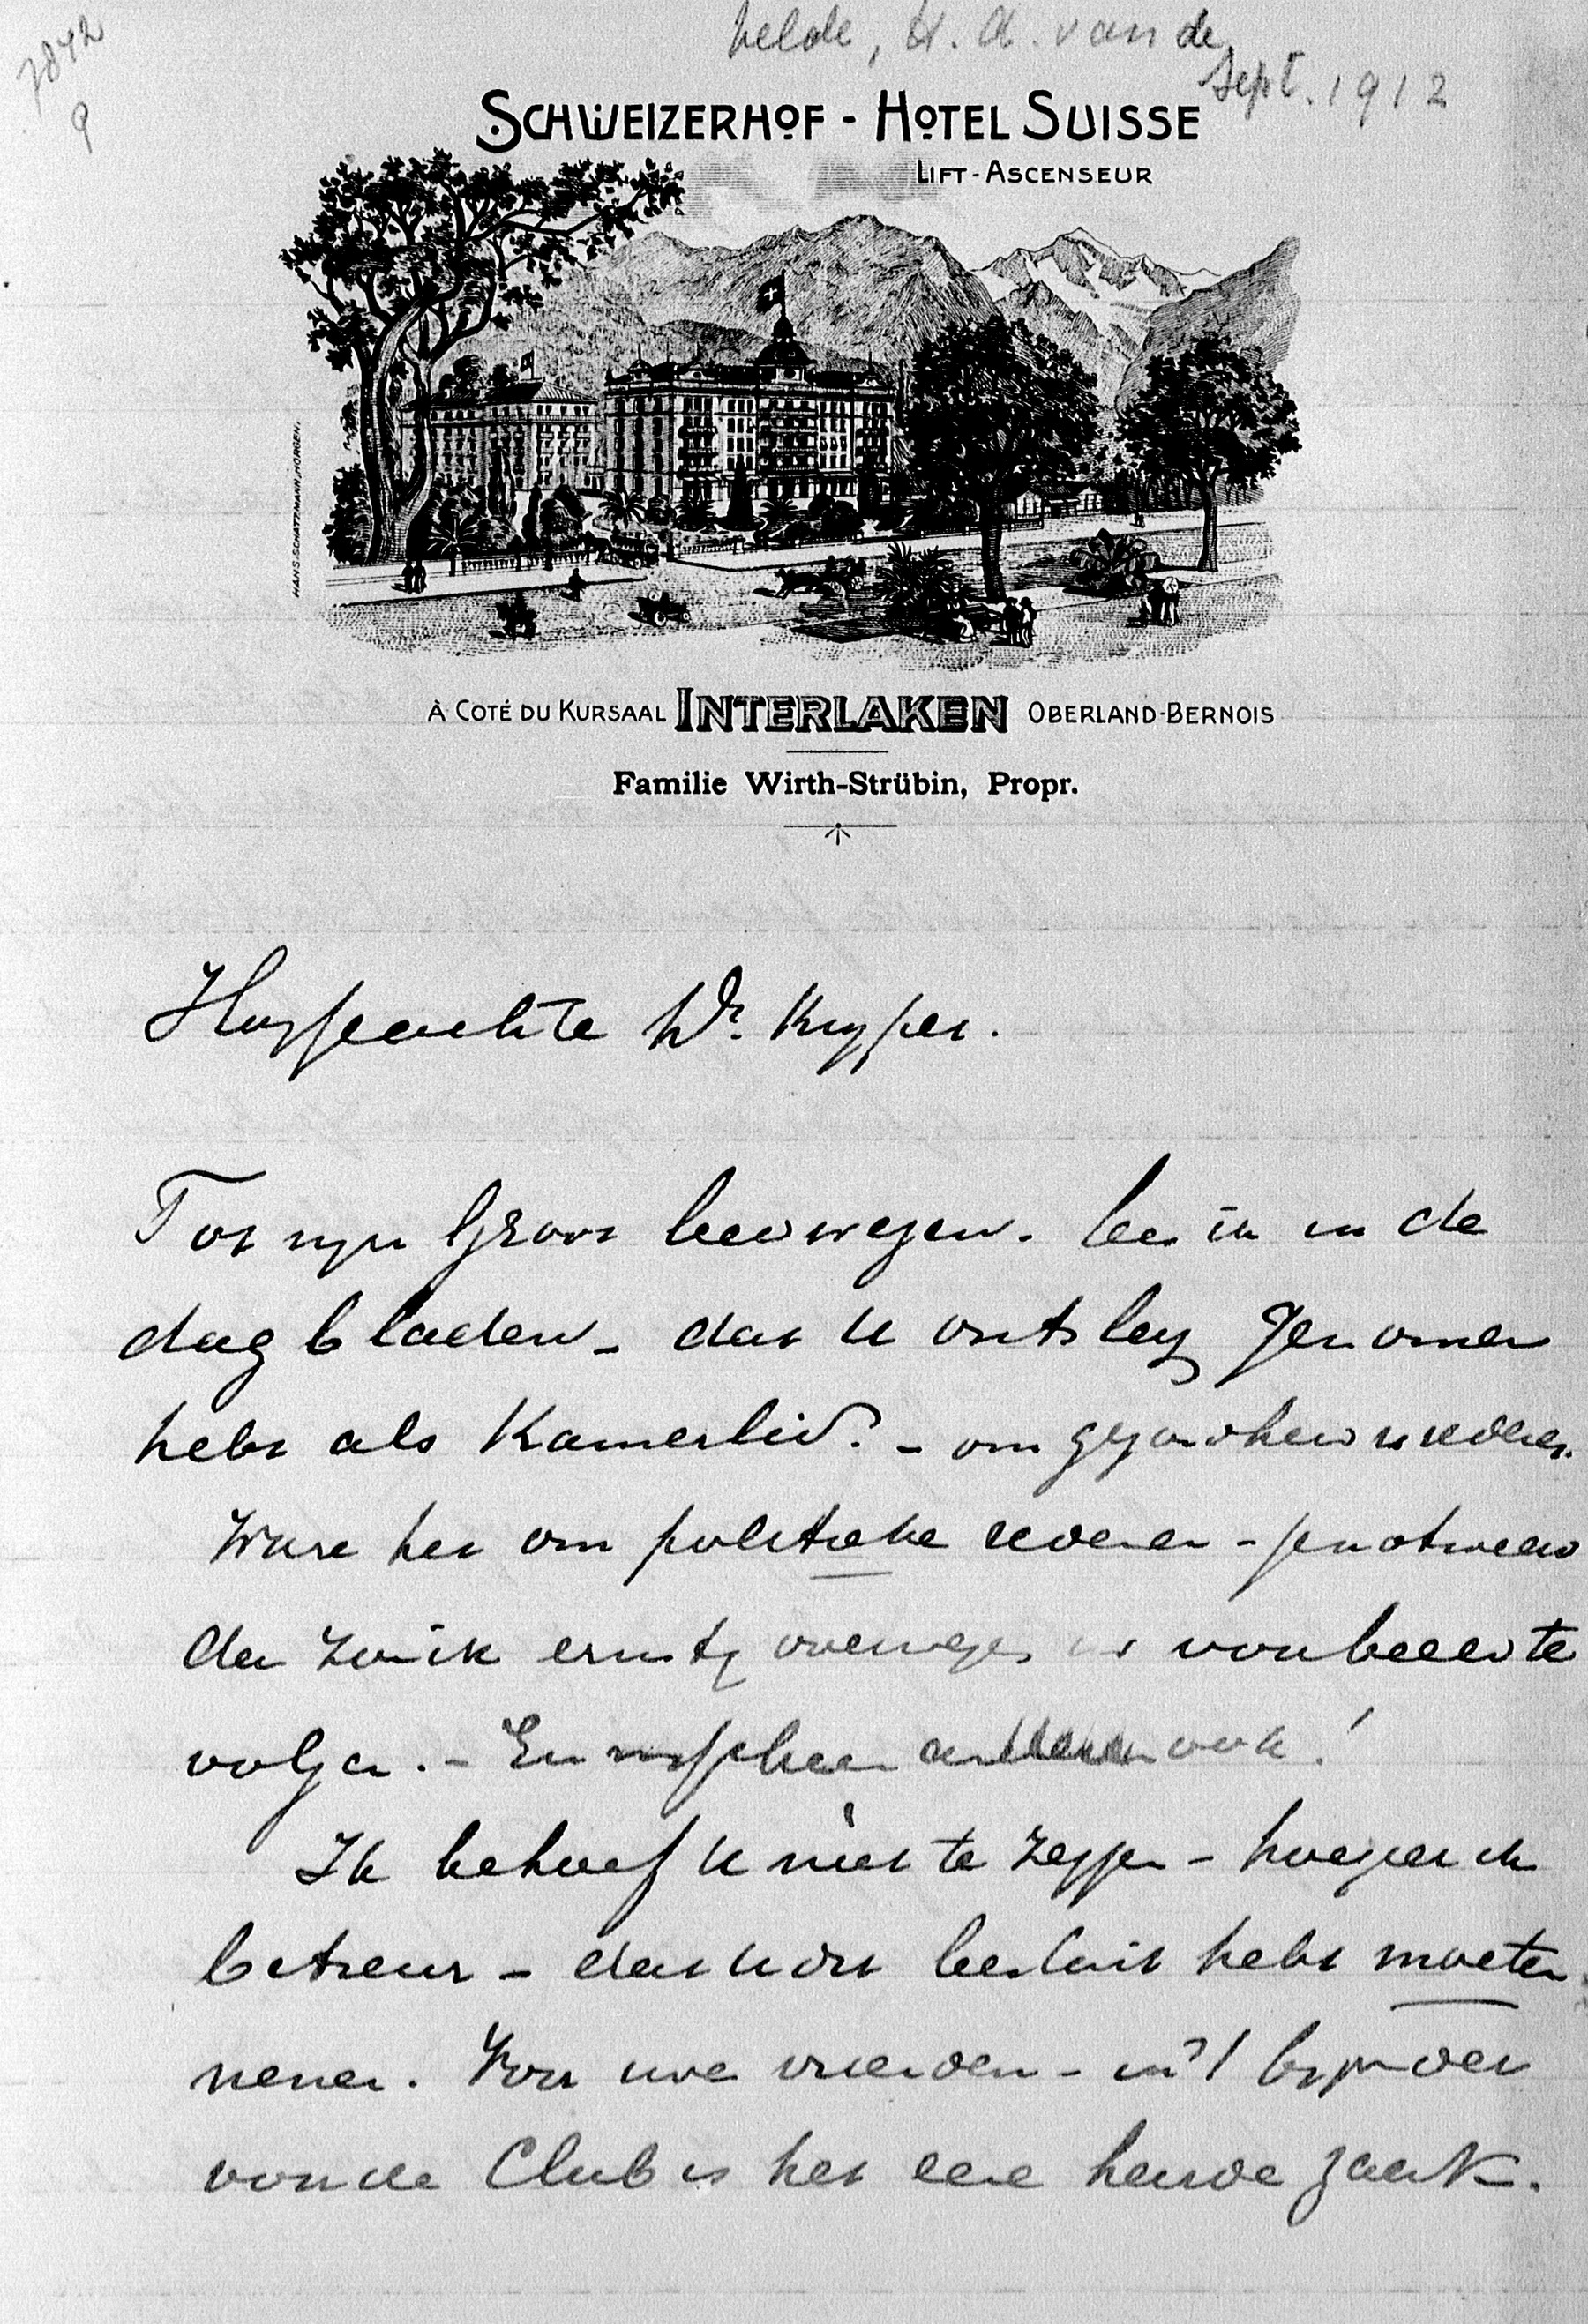 7842
9
Velde, H. A. van de
Sept. 1912
SCHWEIZERHOF - HOTEL SUISSE
LIFT-ASCENSEUR
HANS SCHATZMANN, HORGEN.
À COTÉ DU KURSAAL INTERLAKEN OBERLAND-BERNOIS
Familie Wirth-Strübin, Propr.
Hooggeachte Dr. Kuyper.
Tot mijn groot leedwezen. lees ik in de
dagbladen - dat U ontslag genomen
hebt als Kamerlid. - om gezondheidsredenen.
Ware het om politieke redenen -
der zou ik ernstig overwegen uw voorbeeld te
volgen. - En ook!
Ik behoef U niet te zeggen - hoezeer ik
betreur - dat U dit besluit hebt moeten
nemen. Voor uwe vrienden - in 't bijzonder
voor de Club is het eene harde zaak.